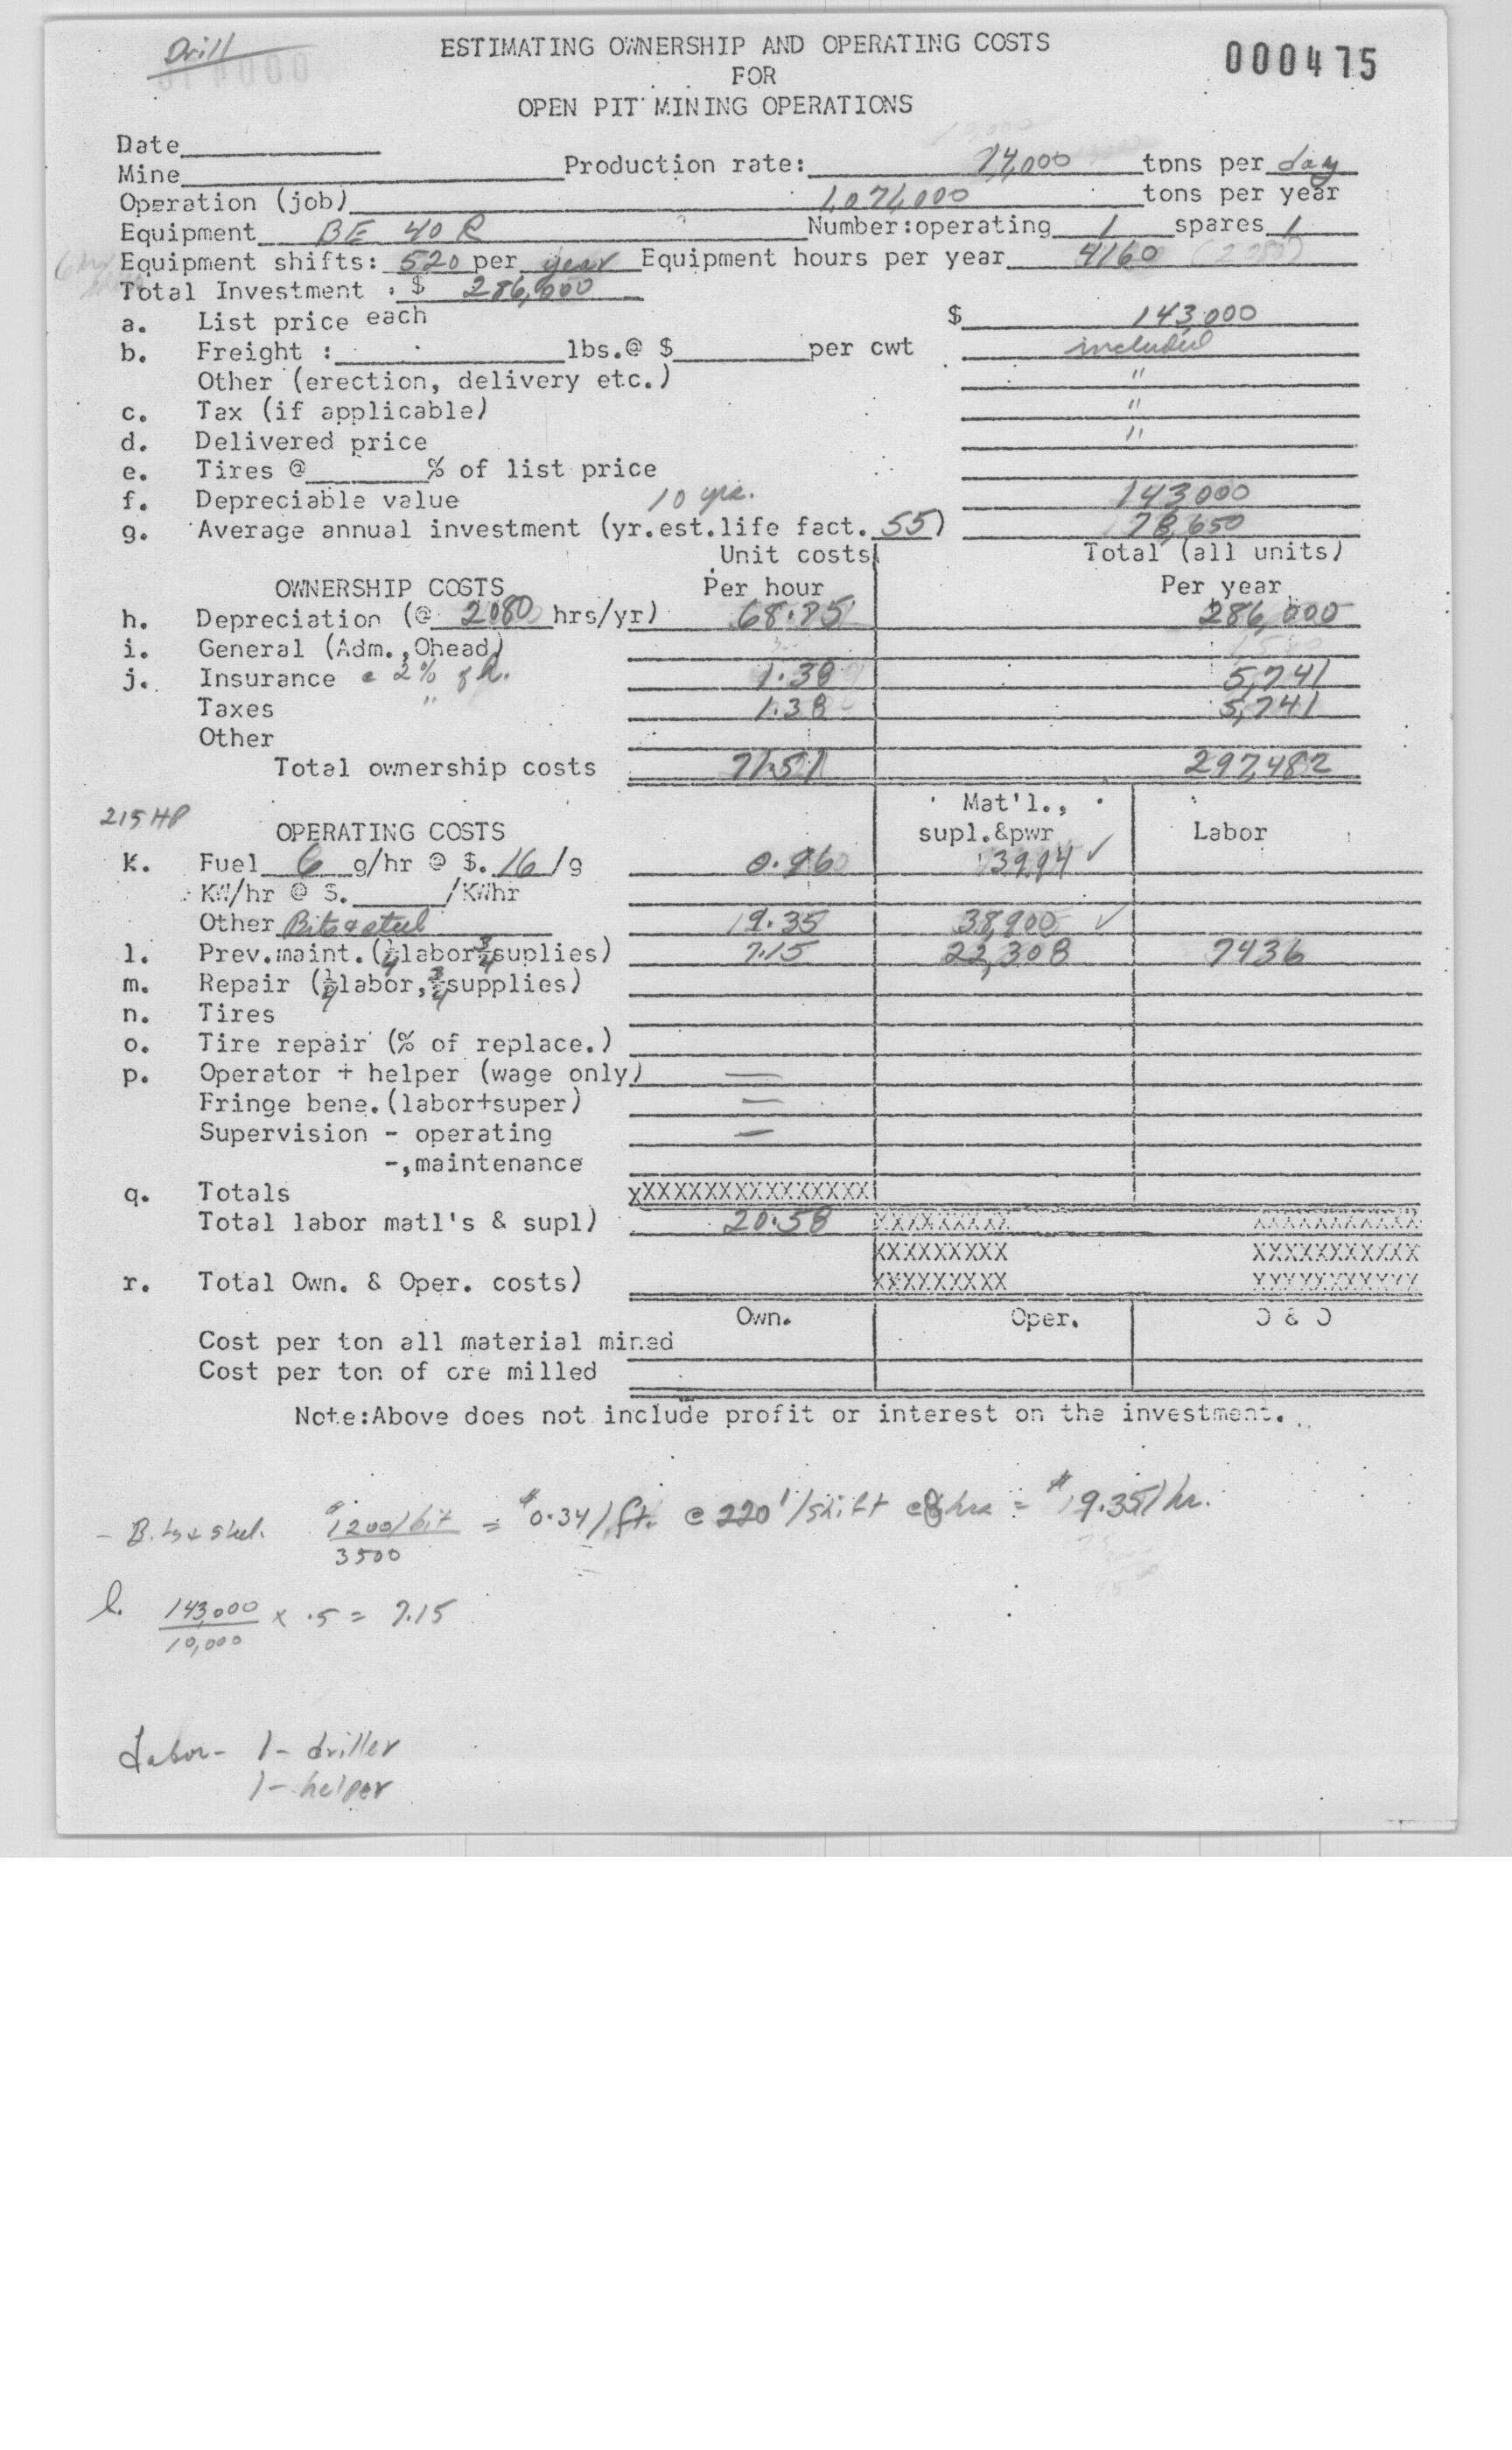 Drill
ESTIMATING OWNERSHIP AND OPERATING COSTS
000475
FOR
OPEN PIT MINING OPERATIONS
Date
Mine Production rate: tons per day
Operation (job) tons per year
Equipment BE 40 R Number:operating 1 spares 1
Equipment shifts: 520 per year Equipment hours per year 4160
Total Investment : $ 286,000
a. List price each $ 143,000
b. Freight : lbs.@ $ per cwt included
Other (erection, delivery etc.) "
c. Tax (if applicable) "
d. Delivered price "
e. Tires @ % of list price
f. Depreciable value 10 yrs. 143000
g. Average annual investment (yr.est.life fact. 55) 78,650
Unit costs Total (all units)
OWNERSHIP COSTS Per hour Per year
h. Depreciation (@ 2080 hrs/yr) 68.75 286,000
i. General (Adm.,Ohead)
j. Insurance @ 2% of h. 1.38 5,741
Taxes " 1.38 5,741
Other
Total ownership costs 71.51 297,482
215 HP Mat'l.,
OPERATING COSTS supl.&pwr Labor
k. Fuel 6 g/hr @ $.16/g 0.96 3994 ✓
KW/hr @ $. /KWhr
Other Bits & steel 9.35 38,900 ✓
l. Prev.maint.(1/4 labor 3/4 suplies) 7.15 22,308 7436
m. Repair (1/4 labor, 3/4 supplies)
n. Tires
o. Tire repair (% of replace.)
p. Operator + helper (wage only)
Fringe bene.(labor+super)
Supervision - operating
-,maintenance
q. Totals XXXXXXXXXXXXXXXX
Total labor matl's & supl) 20.58 XXXXXXXXX XXXXXXXXXXX
XXXXXXXXX XXXXXXXXXXX
r. Total Own. & Oper. costs) XXXXXXXXX XXXXXXXXXXX
Own. Oper. O & O
Cost per ton all material mined
Cost per ton of ore milled
Note:Above does not include profit or interest on the investment.
- Bits & steel. $1200/bit / 3500 = $0.34/ft. @ 220'/shift @ 8 hrs = $9.35/hr.
l. 143,000 / 10,000 x .5 = 7.15
Labor- 1- driller
1- helper